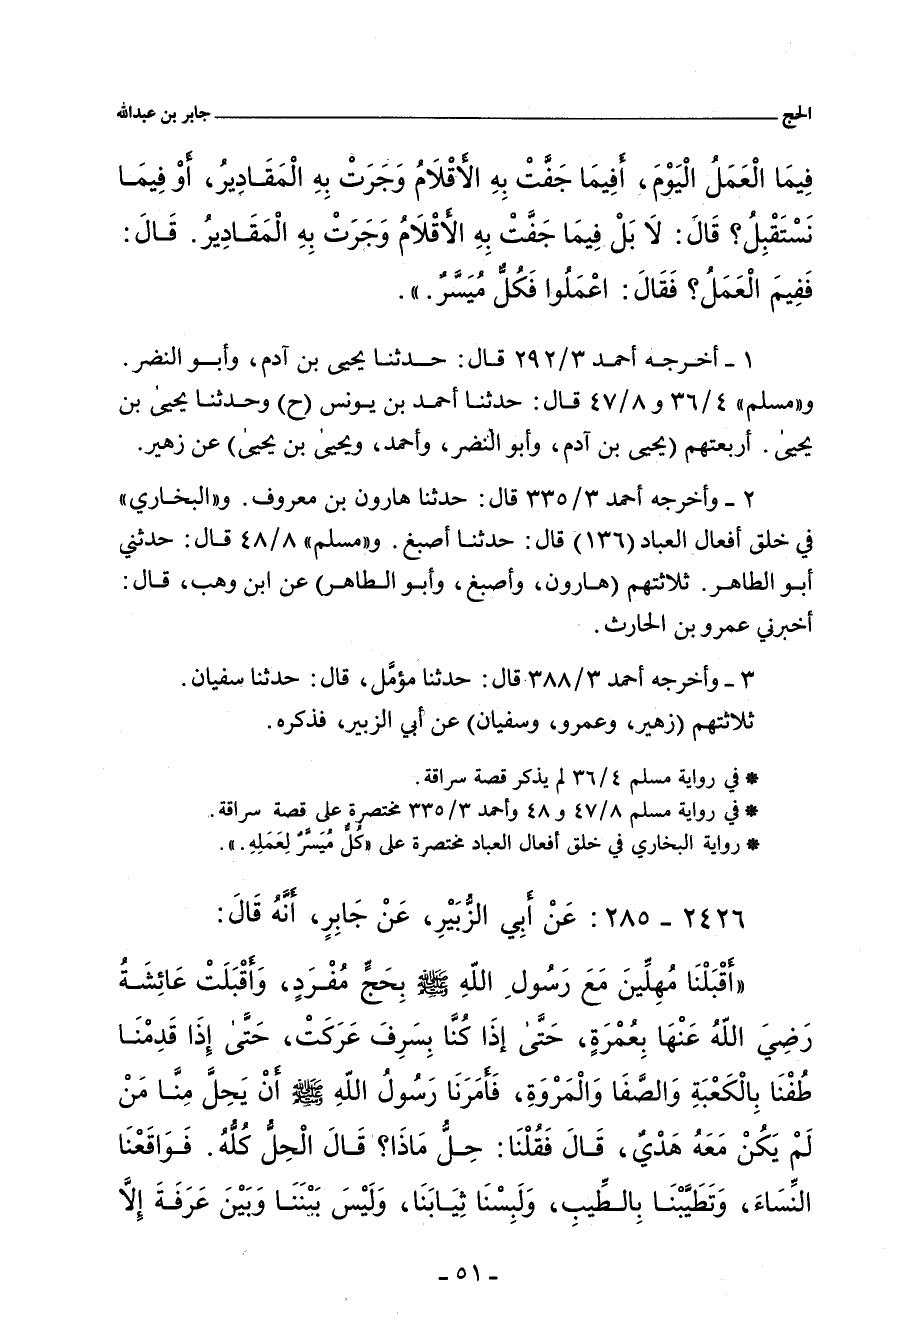 الحج ــــــــــــــــــــــــ جابر بن عبدالله
فِيمَا الْعَمَلُ الْيَوْمَ، أَفِيمَا جَفَّتْ بِهِ الأَقْلَامُ وَجَرَتْ بِهِ الْمَقَادِيرُ، أَوْ فِيمَا
نَسْتَقْبِلُ؟ قَالَ: لَا بَلْ فِيمَا جَفَّتْ بِهِ الأَقْلَامُ وَجَرَتْ بِهِ الْمَقَادِيرُ. قَالَ:
فَفِيمَ الْعَمَلُ؟ فَقَالَ: اعْمَلُوا فَكُلٌّ مُيَسَّرٌ.».
١ ـ أخرجه أحمد ٢٩٢/٣ قال: حدثنا يحيى بن آدم، وأبو النضر.
و«مسلم» ٣٦/٤ و ٤٧/٨ قال: حدثنا أحمد بن يونس (ح) وحدثنا يحيىٰ بن
يحيىٰ. أربعتهم (يحيى بن آدم، وأبو النضر، وأحمد، ويحيىٰ بن يحيىٰ) عن زهير.
٢ ـ وأخرجه أحمد ٣٣٥/٣ قال: حدثنا هارون بن معروف. و«البخاري»
في خلق أفعال العباد (١٣٦) قال: حدثنا أصبغ. و«مسلم» ٤٨/٨ قال: حدثني
أبو الطاهر. ثلاثتهم (هارون، وأصبغ، وأبو الطاهر) عن ابن وهب، قال:
أخبرني عمرو بن الحارث.
٣ ـ وأخرجه أحمد ٣٨٨/٣ قال: حدثنا مؤمَّل، قال: حدثنا سفيان.
ثلاثتهم (زهير، وعمرو، وسفيان) عن أبي الزبير، فذكره.
* في رواية مسلم ٣٦/٤ لم يذكر قصة سراقة.
* في رواية مسلم ٤٧/٨ و ٤٨ وأحمد ٣٣٥/٣ مختصرة على قصة سراقة.
* رواية البخاري في خلق أفعال العباد مختصرة على «كُلٌّ مُيَسَّرٌ لِعَمَلِهِ.».
٢٤٢٦ ـ ٢٨٥: عَنْ أَبِي الزُّبَيْرِ، عَنْ جَابِرٍ، أَنَّهُ قَالَ:
«أَقْبَلْنَا مُهِلِّينَ مَعَ رَسُولِ اللّهِ ﷺ بِحَجٍّ مُفْرَدٍ، وَأَقْبَلَتْ عَائِشَةُ
رَضِيَ اللّهُ عَنْهَا بِعُمْرَةٍ، حَتَّىٰ إِذَا كُنَّا بِسَرِفَ عَرَكَتْ، حَتَّىٰ إِذَا قَدِمْنَا
طُفْنَا بِالْكَعْبَةِ وَالصَّفَا وَالْمَرْوَةِ، فَأَمَرَنَا رَسُولُ اللّهِ ﷺ أَنْ يَحِلَّ مِنَّا مَنْ
لَمْ يَكُنْ مَعَهُ هَدْيٌ، قَالَ فَقُلْنَا: حِلُّ مَاذَا؟ قَالَ الْحِلُّ كُلُّهُ. فَوَاقَعْنَا
النِّسَاءَ، وَتَطَيَّبْنَا بِالطِّيبِ، وَلَبِسْنَا ثِيَابَنَا، وَلَيْسَ بَيْنَنَا وَبَيْنَ عَرَفَةَ إِلَّا
ـ ٥١ ـ